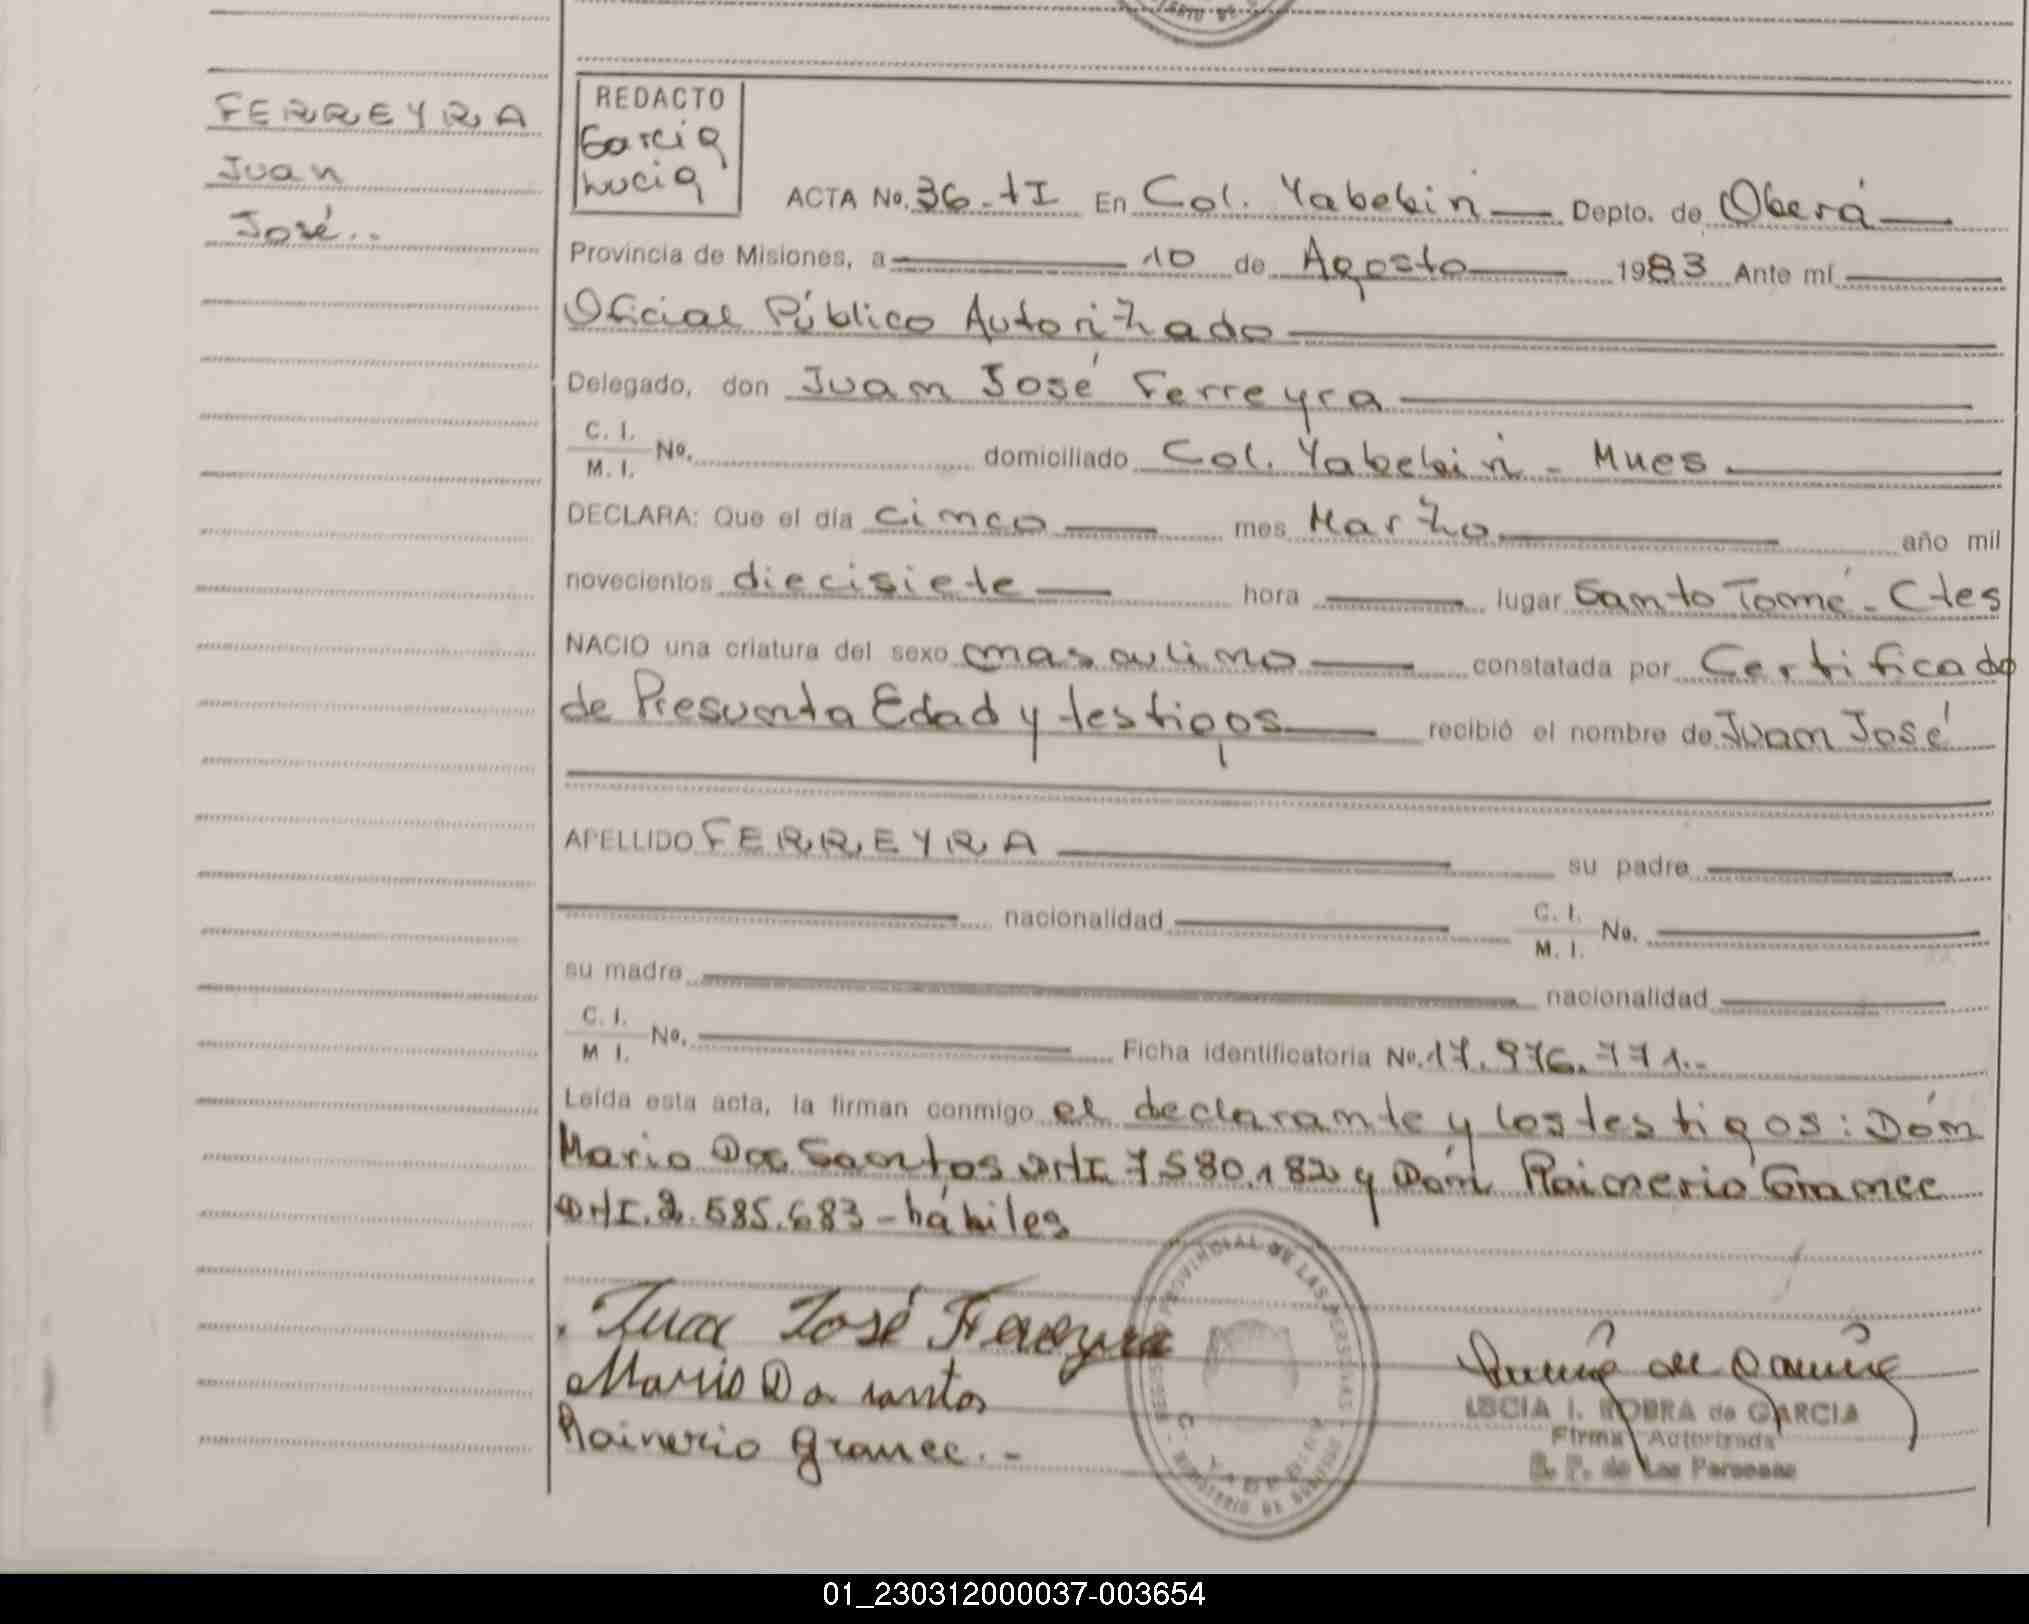 FERREYRA
Juan
José..
REDACTO
Garcia
Lucia
ACTA No. 36-tI En Col. Yabebiri Depto. de Oberá
Provincia de Misiones, a 10 de Agosto 1983 Ante mí
Oficial Público Autorizado
Delegado, don Juan José Ferreyra
C. I.
M. I. No. domiciliado Col. Yabebiri - Mnes
DECLARA: Que el día cinco mes Marzo año mil
novecientos diecisiete hora lugar Santo Tomé - Ctes
NACIO una criatura del sexo masculino constatada por Certificado
de Presunta Edad y testigos recibió el nombre de Juan José
APELLIDO FERREYRA su padre
nacionalidad C. I.
M. I. No.
su madre nacionalidad
C. I.
M I. No. Ficha identificatoria No. 17.976.771..
Leída esta acta, la firman conmigo el declarante y los testigos: Dón
Mario Dos Santos DNI 7580.182 y Dón Rainerio Gramee
DNI. 2.585.683 - hábiles
Juan José Ferreyra
Mario Do santos
Rainerio gramee.-
LUCIA I. ROBRA de GARCIA
Firma Autorizada
R. P. de Las Personas
PROVINCIAL DE LAS PERSONAS
MINISTERIO DE
01_230312000037-003654